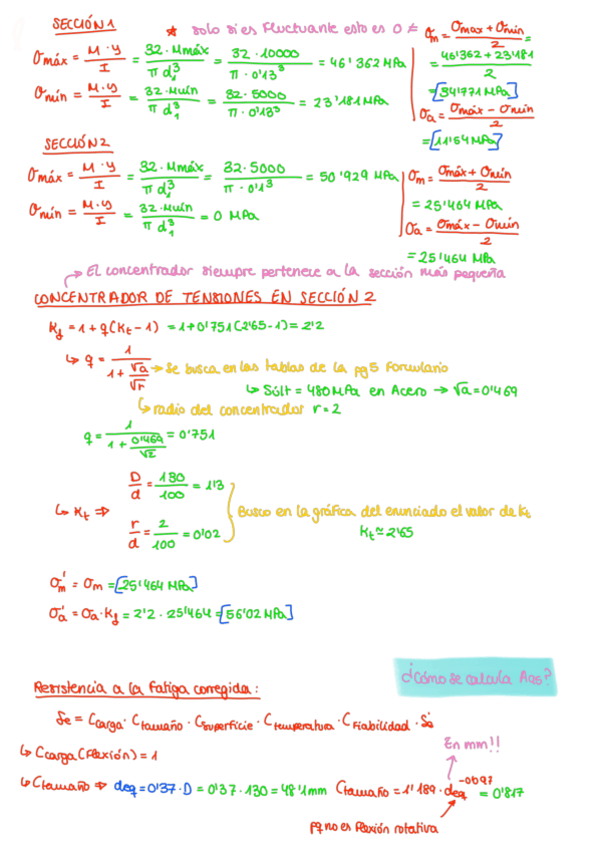 SECCIÓN 1
* solo si es fluctuante esto es 0 ≠
σmáx = M · y / I = 32 · Mmáx / π d₁³ = 32 · 10000 / π · 0'13³ = 46'362 MPa
σmín = M · y / I = 32 · Mmín / π d₁³ = 32 · 5000 / π · 0'13³ = 23'181 MPa
σm = σmax + σmin / 2 =
= 46'362 + 23'181 / 2
= [34'771 MPa]
σa = σmáx − σmín / 2
= [11'54 MPa]
SECCIÓN 2
σmáx = M · y / I = 32 · Mmáx / π d₁³ = 32 · 5000 / π · 0'1³ = 50'929 MPa
σmín = M · y / I = 32 · Mmín / π d₁³ = 0 MPa
σm = σmáx + σmín / 2
= 25'464 MPa
σa = σmáx − σmín / 2
= 25'464 MPa
→ El concentrador siempre pertenece a la sección más pequeña
CONCENTRADOR DE TENSIONES EN SECCIÓN 2
Kf = 1 + q(Kt − 1) = 1 + 0'751(2'65 − 1) = 2'2
↳ q = 1 / 1 + √a / √r → Se busca en las tablas de la pg 5 Formulario
↳ Súlt = 480 MPa en Acero → √a = 0'469
↳ radio del concentrador r = 2
q = 1 / 1 + 0'469 / √2 = 0'751
↳ Kt ⇒
D / d = 130 / 100 = 1'3
r / d = 2 / 100 = 0'02
Busco en la gráfica del enunciado el valor de kt
kt ≈ 2'65
σm' = σm = [25'464 MPa]
σa' = σa · Kf = 2'2 · 25'464 = [56'02 MPa]
¿Cómo se calcula A95?
Resistencia a la fatiga corregida:
Se = Ccarga · Ctamaño · Csuperficie · Ctemperatura · Cfiabilidad · Se'
↳ Ccarga (Flexión) = 1
En mm!!
↳ Ctamaño ⇒ deq = 0'37 · D = 0'37 · 130 = 48'1 mm Ctamaño = 1'189 · deq^−0'097 = 0'817
pq no es flexión rotativa